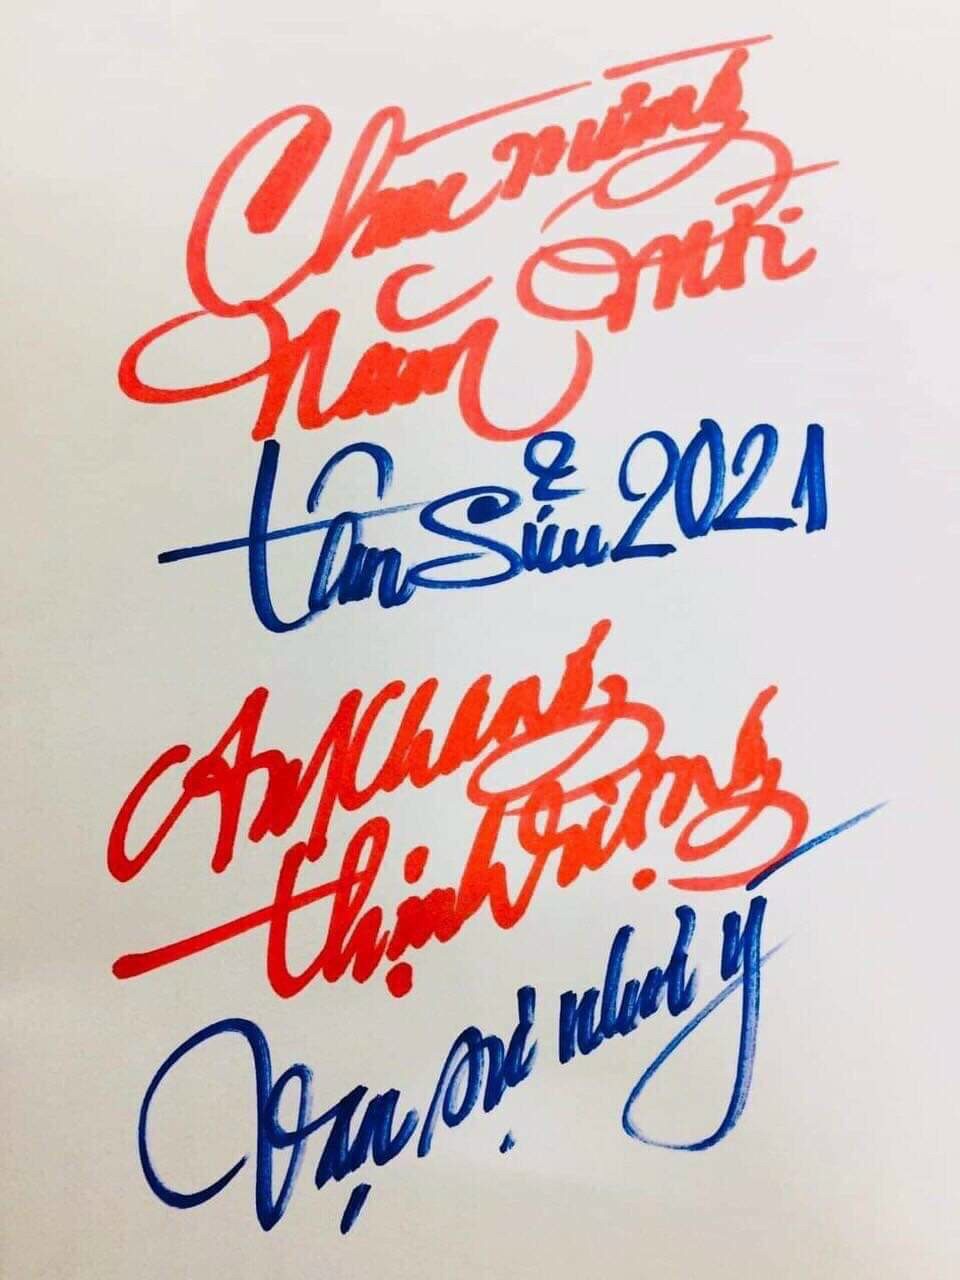 Chúc mừng
Năm Mới
tân Sửu 2021
An Khang
thịnh Vượng
Vạn sự như ý